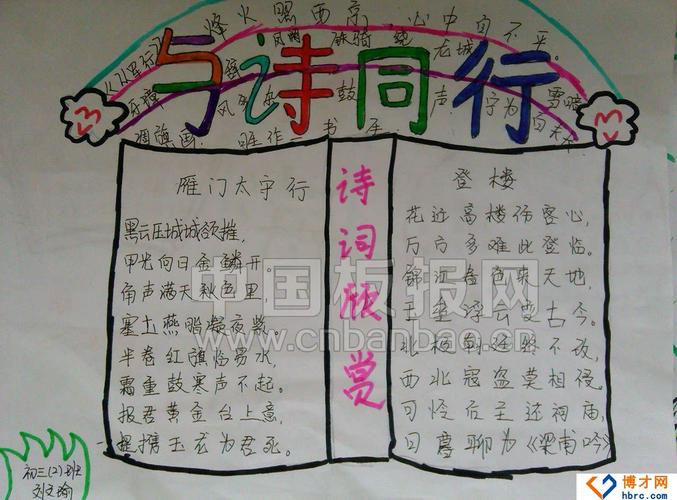 烽火照西京,心中自不平。
《从军行》
牙璋辞凤阙 铁骑绕龙城
雪暗
凋旗画 风多杂鼓声 宁为百夫
胜作一书生
与诗同行
雁门太守行
黑云压城城欲推,
甲光向日金鳞开。
角声满天秋色里,
塞土燕脂凝夜紫。
半卷红旗临易水,
霜重鼓寒声不起。
报君黄金台上意,
提携玉龙为君死。
诗词欣赏
登楼
花近高楼伤客心,
万方多难此登临。
锦江春色来天地,
玉垒浮云变古今。
北极朝廷终不改,
西北寇盗莫相侵。
可怪后主还祠庙,
日暮聊为《梁甫吟》
初三(2)班
刘文瑜
中国板报网
www.cnbanbao.cn
博才网
hbrc.com